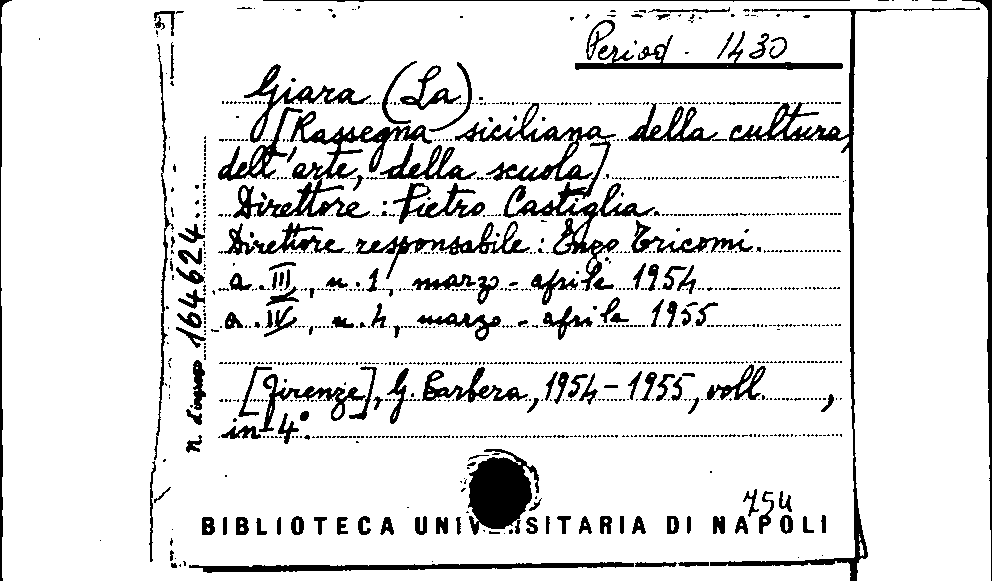 Period. 1430
Giara (La).
[Rassegna siciliana della cultura,
dell'arte, della scuola].
Direttore: Pietro Castiglia.
Direttore responsabile: Enzo Tricomi.
a. III, n. 1, marzo - aprile 1954.
a. IV, n. 4, marzo - aprile 1955
[Firenze], G. Barbera, 1954-1955, voll. ,
in-4°.
N. d'ingresso 164624...
754
BIBLIOTECA UNIVERSITARIA DI NAPOLI